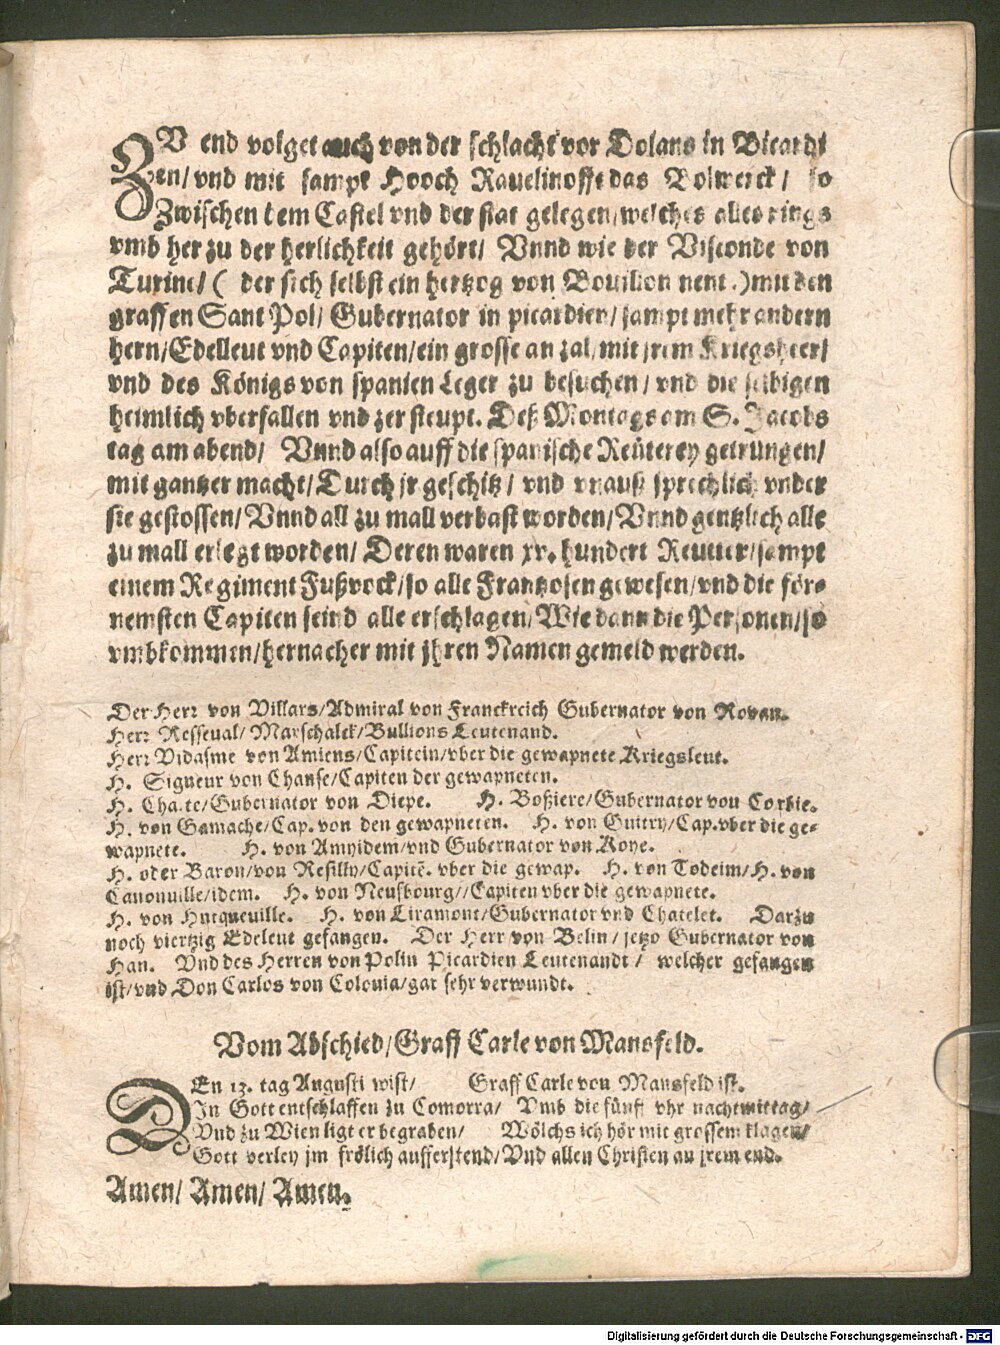 ZV end volget auch von der schlacht vor Dolans in Bicardi
en/ vnd mit sampt Hooch Rauelinofft das Bolwerck/ so
Zwischen dem Castel vnd der stat gelegen/ welches alles rings
vmb her zu der herlichkeit gehört/ Vnnd wie der Visconde von
Turine/ ( der sich selbst ein hertzog von Bouillon nent.) mit den
graffen Sant Pol/ Gubernator in picardien/ sampt mehr andern
hern/ Edelleut vnd Capiten/ ein grosse an zal/ mit jrem Kriegsheer/
vnd des Königs von spanien Leger zu besuchen/ vnd die selbigen
heimlich vberfallen vnd zersteupt. Deß Montags am S. Jacobs
tag am abend/ Vnnd also auff die spanische Reüterey getrungen/
mit gantzer macht/ Durch jr geschitz/ vnd vnauß sprechlich vnder
sie gestossen/ Vnnd all zu mall verbast worden/ Vnnd gentzlich alle
zu mall erlegt worden/ Deren waren xv. hundert Reutter/ sampt
einem Regiment Fußvock/ so alle Frantzosen gewesen/ vnd die för-
nemsten Capiten seind alle erschlagen/ Wie dann die Personen/ so
vmbkommen/ hernacher mit jhren Namen gemeld werden.
Der Herr von Villars/ Admiral von Franckreich Gubernator von Rovan.
Herr Resseual/ Marschalck/ Bullions Leutenand.
Herr Vidasme von Amiens/ Capitein/ vber die gewapnete Kriegsleut.
H. Signeur von Chanse/ Capiten der gewapneten.
H. / Gubernator von Diepe. H. Boßiere/ Gubernator von Corbie.
H. von Gamache/ Cap. von den gewapneten. H. von Guitry/ Cap. vber die ge-
wapnete. H. von Amyidem/ vnd Gubernator von Roye.
H. oder Baron/ von Resilly/ Capitē. vber die gewap. H. von Todeim/ H. von
Canonuille/ idem. H. von Neufbourg// Capiten vber die gewapnete.
H. von Hutqueuille. H. von Liramont/ Gubernator vnd Chatelet. Darzu
noch viertzig Edeleut gefangen. Der Herr von Belin/ jetzo Gubernator von
Han. Vnd des Herren von Polin Picardien Leutenandt/ welcher gefangen
ist/ vnd Don Carlos von Colonia/ gar sehr verwundt.
Vom Abschied/ Graff Carle von Mansfeld.
DEn 13. tag Augusti wist/ Graff Carle von Mansfeld ist.
In Gott entschlaffen zu Comorra/ Vmb die fünff vhr nachtmittag/
Vnd zu Wien ligt er begraben/ Wölchs ich hör mit grossem klagen/
Gott verley jm frölich aufferstend/ Vnd allen Christen an jrem end.
Amen/ Amen/ Amen.
Digitalisierung gefördert durch die Deutsche Forschungsgemeinschaft - DFG